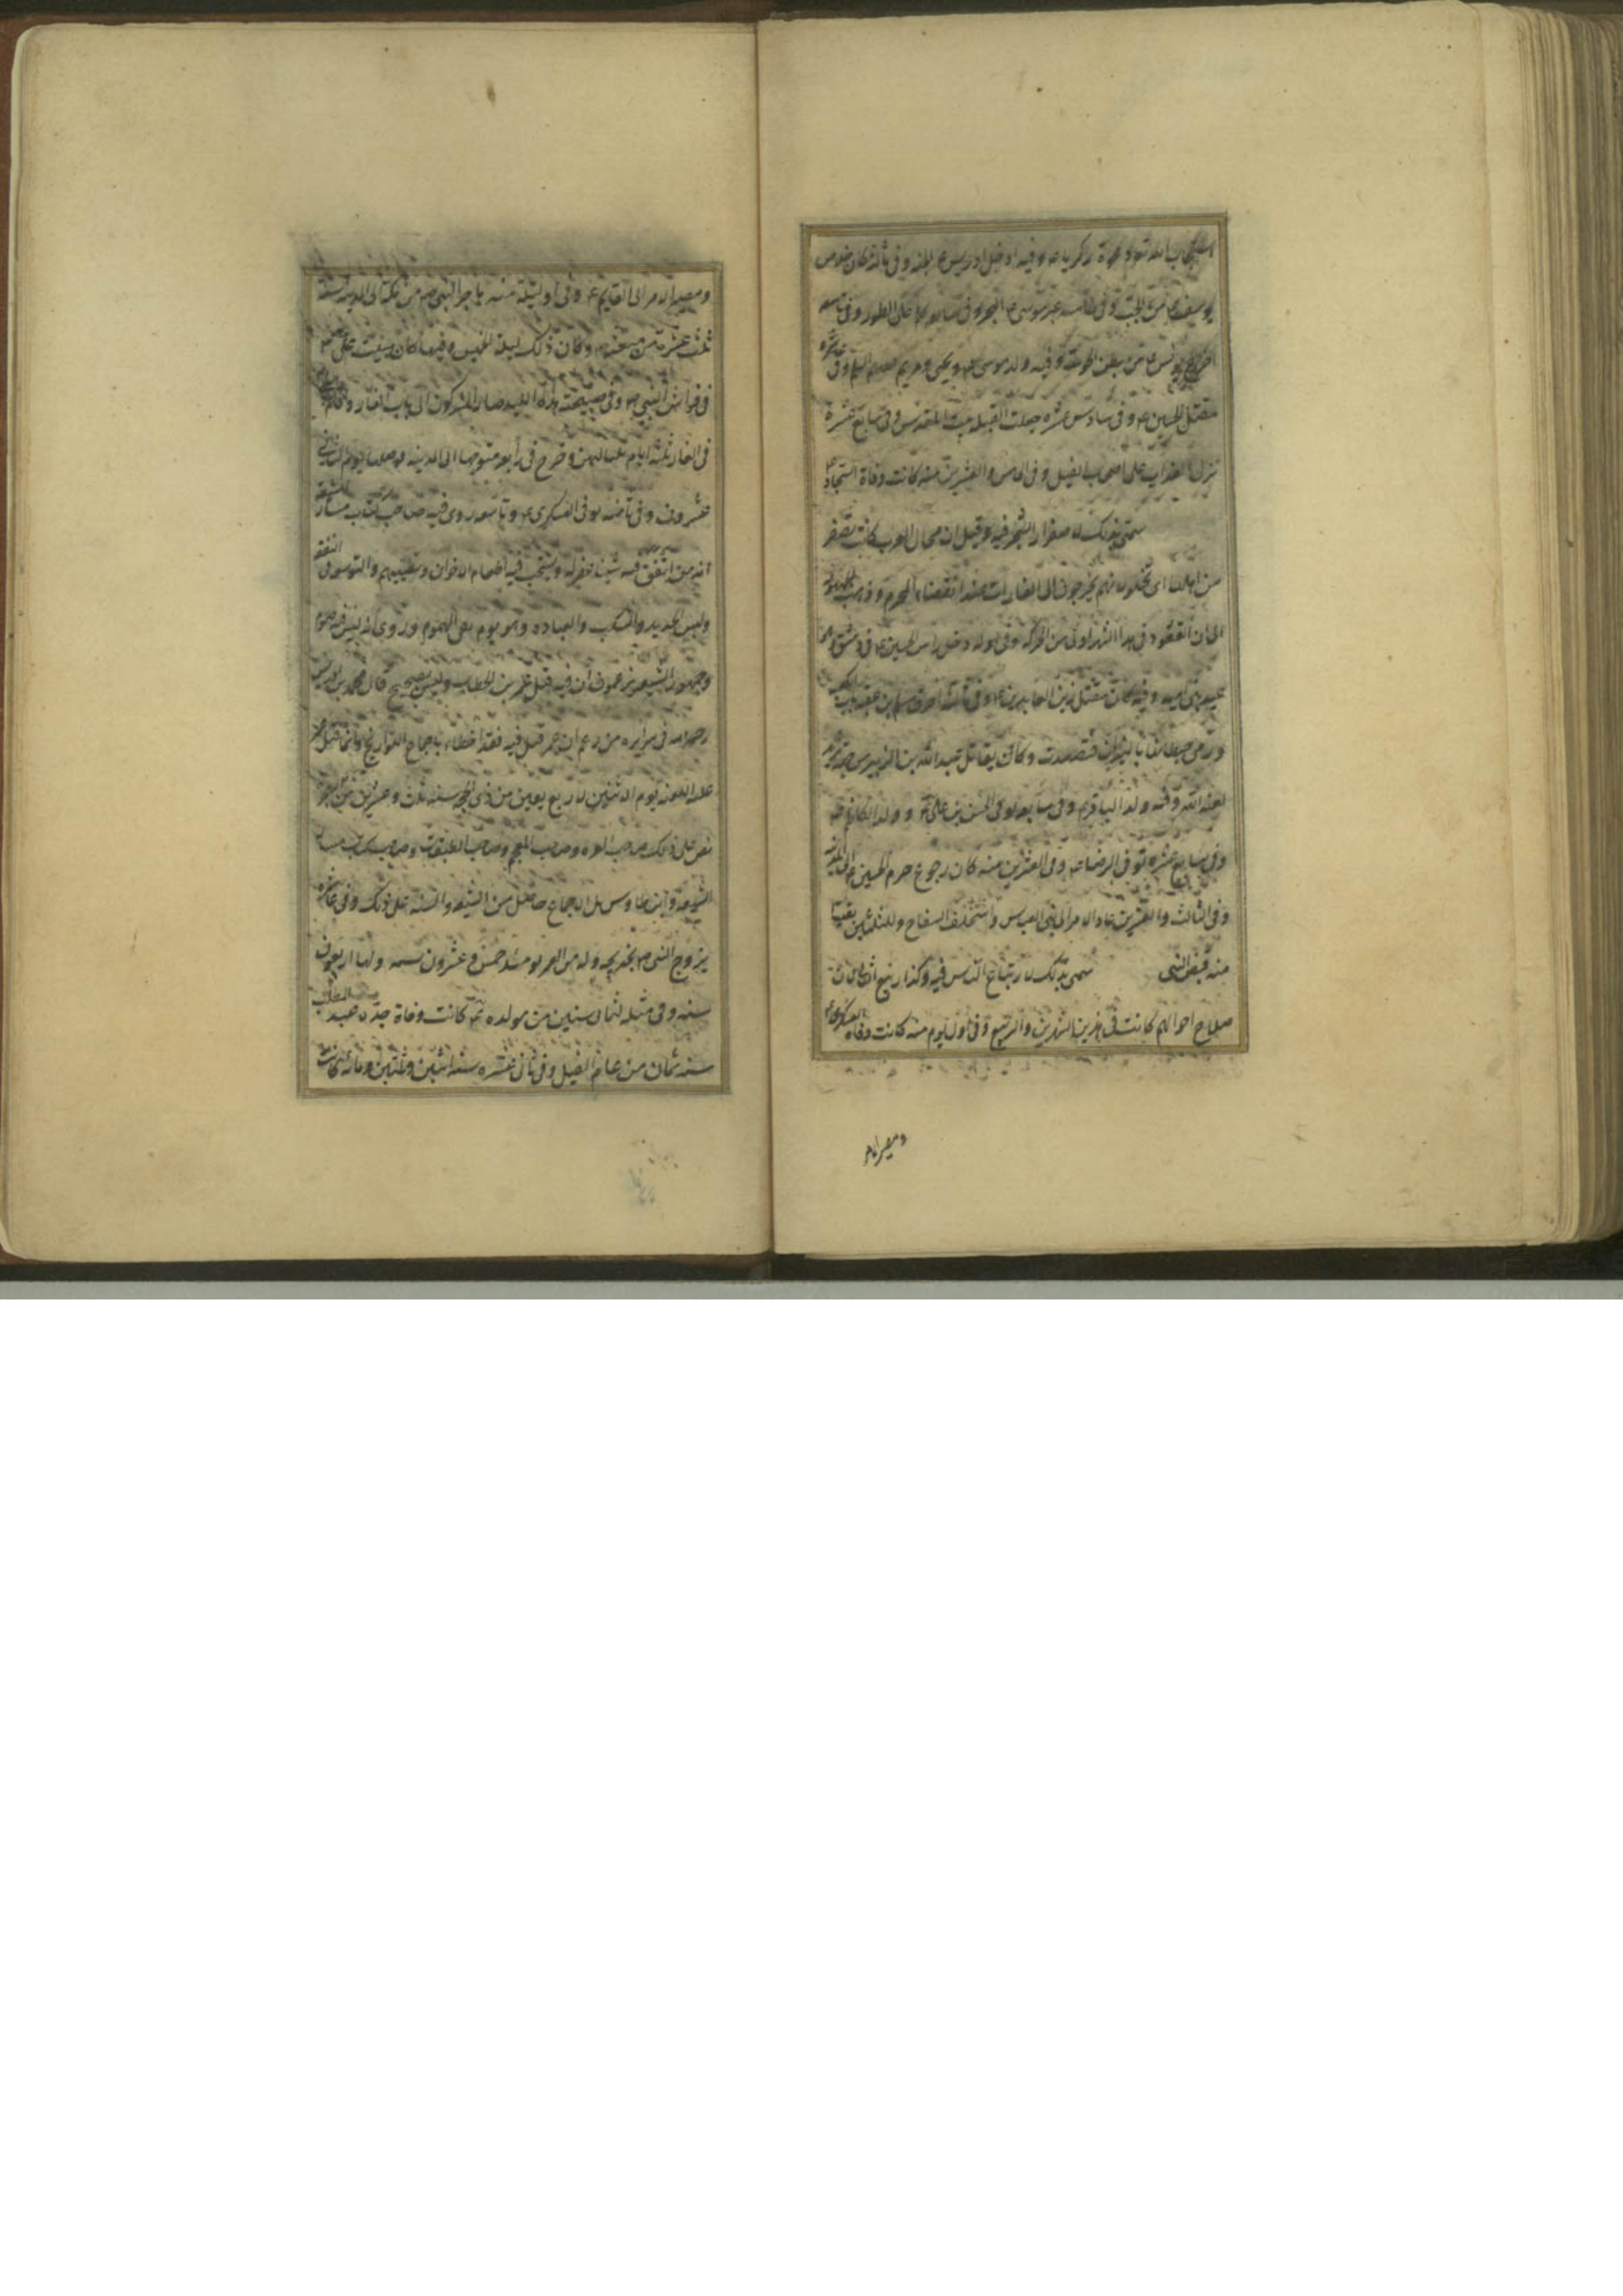 استجاب الله تعالى دعوة زكريا ع وفيه ادخل ادريس ع الجنة وفى ثالثه كان خلاص
يوسف ع من الجب وفى خامسه عبر موسى ع البحر وفى سابعه كلم على الطور وفى تاسعه
اخرج يونس ع من بطن الحوت وفيه ولد موسى ع ويحيى ومريم عليهم السلم وفى عاشره
مقتل الحسين ع وفى سادس عشره جعلت القبلة بيت المقدس وفى سابع عشرة
نزل العذاب على اصحاب الفيل وفى الخامس والعشرين منه كانت وفاة السجاد ع
سمى بذلك لاصفرار الشجر فيه وقيل ان محال العرب كانت تصفر
من اهلها اى تخلو لانهم يخرجون الى الغارات عند انقضاء المحرم وذهب الجمهور
الى ان القعود فى هذا الشهر اولى من الحركة وفى اوله دخل راس الحسين ع فى دمشق وهو
عيد بنى اميه وفيه كان مقتل زين العابدين ع وفى ثالثه احرق مسلم بن عقبة باب الكعبة
ورمى حيطانها بالنيران فتصدعت وكان يقاتل عبد الله بن الزبير من جهة يزيد
لعنه الله وفيه ولد الباقر ع وفى سابعه توفى الحسن بن على ع وولد الكاظم ع
وفى سابع عشره توفى الرضا ع وفى العشرين منه كان رجوع حرم الحسين ع الى المدينة
وفى الثالث والعشرين عاد الامر الى بنى العباس واستخلف السفاح ولليلتين بقيتا
منه قبض النبى سمى بذلك لارتباع الناس فيه وكذا ربيع الثانى لان
صلاح احوالهم كانت فى هذين الشهرين والربيع وفى اول يوم منه كانت وفاة العسكرى ع
ومصير الامر
ومصير الامر الى القايم ع وفى اول ليلة منه هاجر النبى ص من مكة الى المدينة سنة
ثلث عشرة من مبعثه وكان ذلك ليلة الخميس وفيها كان مبيت على ع
فى فراش النبى ص وفى صبيحة هذه الليلة صار المشركون الى باب الغار واقام
فى الغار ثلثة ايام بلياليهن وخرج فى رابعه متوجها الى المدينة فوصلها يوم الثانى
عشر وفى ثامنه توفى العسكرى ع وتاسعه روى فيه صاحب كتاب مسار الشيعة
انه من انفق فيه شيئا غفر له ويستحب فيه اطعام الاخوان وتطييبهم والتوسع فى النفقة
ولبس الجديد والشكر والعبادة وهو يوم نفى الهموم وروى انه ليس فيه صوم
وجمهور الشيعة يزعمون ان فيه قتل عمر بن الخطاب وليس بصحيح قال محمد بن ادريس
رحمه الله فى سرايره من زعم ان عمر قتل فيه فقد اخطاء باجماع التواريخ وانما قتل عمر
عليه اللعنة يوم الاثنين لاربع بقين من ذى الحجة سنة ثلث وعشرين من الهجرة
نص على ذلك صاحب الغره وصاحب المعجم وصاحب الطبقات وصاحب كتاب مسار
الشيعة وابن طاوس بل الاجماع حاصل من الشيعة والسنة على ذلك وفى عاشره
تزوج النبى ص بخديجة وله من العمر يومئذ خمس وعشرون سنة ولها اربعون
سنه وفى مثله لثمان سنين من مولده ع كانت وفاة جده عبد المطلب
سنة ثمان من عام الفيل وفى ثانى عشره سنة اثنين وثلثين ومائة كانت